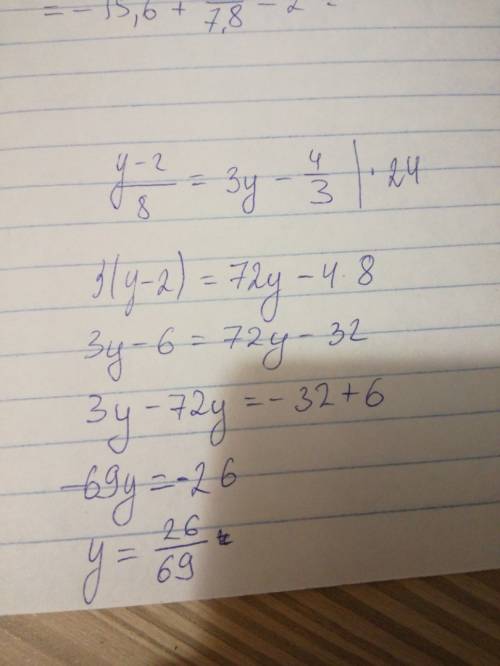 = - 15,6 + /7,8 - 2
(y-2)/8 = 3y - 4/3 | · 24
3(y-2) = 72y - 4·8
3y - 6 = 72y - 32
3y - 72y = - 32 + 6
-69y = -26
y = 26/69